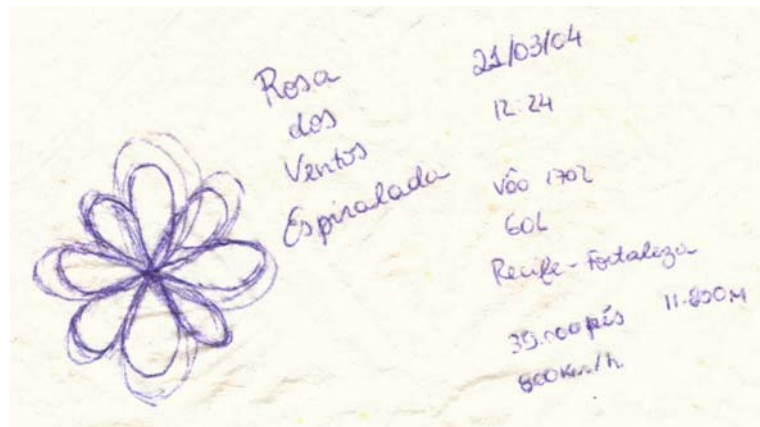 Rosa
dos
Ventos
Espiralada
21/03/04
12:24
Vôo 1702
GOL
Recife-Fortaleza
39.000 pés 11.890M
800Km/h